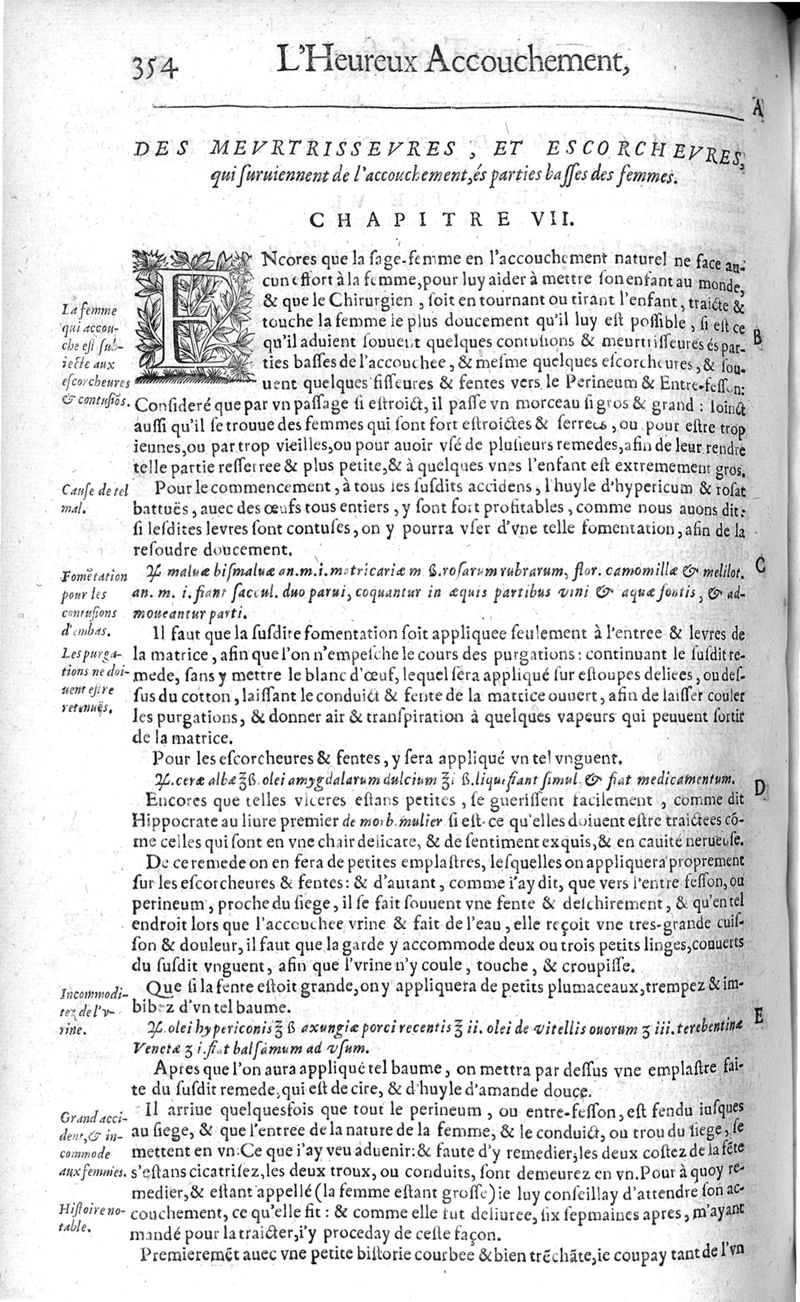 354 L'Heureux Accouchement,
A
DES MEVRTRISSEVRES, ET ESCORCHEVRES,
qui ſuruiennent de l'accouchement, és parties baſſes des femmes.
CHAPITRE VII.
ENcores que la ſage-femme en l'accouchement naturel ne face au-
cun effort à la femme, pour luy aider à mettre ſon enfant au monde,
& que le Chirurgien, ſoit en tournant ou tirant l'enfant, traicte &
touche la femme le plus doucement qu'il luy eſt poſſible, ſi eſt ce
qu'il aduient ſouuent quelques contuſions & meurtriſſeures és par-
ties baſſes de l'accouchee, & meſme quelques eſcorcheures, & ſou-
uent quelques fiſſeures & fentes vers le Perineum & Entre-feſſon:
La femme
qui accou-
che eſt ſub-
iecte aux
eſcorcheures
& contuſiõs.
B
Conſideré que par vn paſſage ſi eſtroict, il paſſe vn morceau ſi gros & grand: Ioinct
auſſi qu'il ſe trouue des femmes qui ſont fort eſtroictes & ſerrees, ou pour eſtre trop
ieunes, ou par trop vieilles, ou pour auoir vſé de pluſieurs remedes, afin de leur rendre
telle partie reſſerree & plus petite, & à quelques vnes l'enfant eſt extremement gros.
Cauſe de tel
mal.
Pour le commencement, à tous les ſuſdits accidens, l'huyle d'hypericum & roſat
battuës, auec des œufs tous entiers, y ſont fort profitables, comme nous auons dit:
ſi leſdites levres ſont contuſes, on y pourra vſer d'vne telle fomentation, afin de la
reſoudre doucement.
Fomẽtation
pour les
contuſions
d'embas.
C
℞. maluæ biſmaluæ an. m. i. matricariæ m ß. roſarum rubrarum, flor. camomillæ & melilot.
an. m. i. fiant ſaccul. duo parui, coquantur in æquis partibus vini & aquæ fontis, & ad-
moueantur parti.
Il faut que la ſuſdite fomentation ſoit appliquee ſeulement à l'entree & levres de
la matrice, afin que l'on n'empeſche le cours des purgations: continuant le ſuſdit re-
mede, ſans y mettre le blanc d'œuf, lequel ſera appliqué ſur eſtoupes deliees, ou deſ-
ſus du cotton, laiſſant le conduict & fente de la matrice ouuert, afin de laiſſer couler
les purgations, & donner air & tranſpiration à quelques vapeurs qui peuuent ſortir
de la matrice.
Les purga-
tions ne doi-
uent eſtre
retenuës.
Pour les eſcorcheures & fentes, y ſera appliqué vn tel vnguent.
℞. ceræ albæ ℥ß. olei amygdalarum dulcium ℥i ß. liquefiant ſimul & fiat medicamentum.
D
Encores que telles vlceres eſtans petites, ſe gueriſſent facilement, comme dit
Hippocrate au liure premier de morb. mulier ſi eſt-ce qu'elles doiuent eſtre traictees cõ-
me celles qui ſont en vne chair delicate, & de ſentiment exquis, & en cauité nerueuſe.
De ce remede on en fera de petites emplaſtres, leſquelles on appliquera proprement
ſur les eſcorcheures & fentes: & d'autant, comme i'ay dit, que vers l'entre feſſon, ou
perineum, proche du ſiege, il ſe fait ſouuent vne fente & deſchirement, & qu'en tel
endroit lors que l'accouchee vrine & fait de l'eau, elle reçoit vne tres-grande cuiſ-
ſon & douleur, il faut que la garde y accommode deux ou trois petits linges, couuerts
du ſuſdit vnguent, afin que l'vrine n'y coule, touche, & croupiſſe.
Incommodi-
tez de l'v-
rine.
Que ſi la fente eſtoit grande, on y appliquera de petits plumaceaux, trempez & im-
bibez d'vn tel baume.
E
℞. olei hypericonis ℥ ß axungiæ porci recentis ℥ ii. olei de vitellis ouorum ʒ iii. terebentinæ
Venetæ ʒ i. fiat balſamum ad vſum.
Apres que l'on aura appliqué tel baume, on mettra par deſſus vne emplaſtre fai-
te du ſuſdit remede, qui eſt de cire, & d'huyle d'amande douce.
Il arriue quelquesfois que tout le perineum, ou entre-feſſon, eſt fendu iuſques
au ſiege, & que l'entree de la nature de la femme, & le conduict, ou trou du ſiege, ſe
mettent en vn: Ce que i'ay veu aduenir: & faute d'y remedier, les deux coſtez de la fẽte
s'eſtans cicatriſez, les deux troux, ou conduits, ſont demeurez en vn. Pour à quoy re-
medier, & eſtant appellé (la femme eſtant groſſe) ie luy conſeillay d'attendre ſon ac-
couchement, ce qu'elle fit: & comme elle fut deliuree, ſix ſepmaines apres, m'ayant
mandé pour la traicter, i'y proceday de ceſte façon.
Grand acci-
dent, & in-
commode
aux femmes.
Hiſtoire no-
table.
Premieremẽt auec vne petite biſtorie courbee & bien trẽchãte, ie coupay tant de l'vn